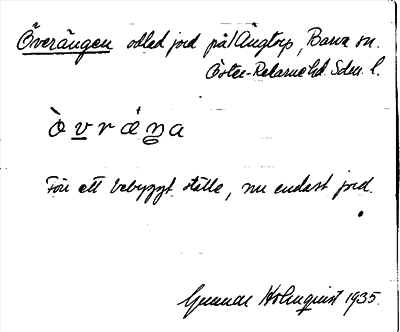 Överängen odlad jord på Ängtorp, Barva sn.
Öster-Rekarne hd. Sdm. l.
òvrǽŋa
Förr ett bebyggt ställe, nu endast jord.
Gunnar Holmquist 1935.